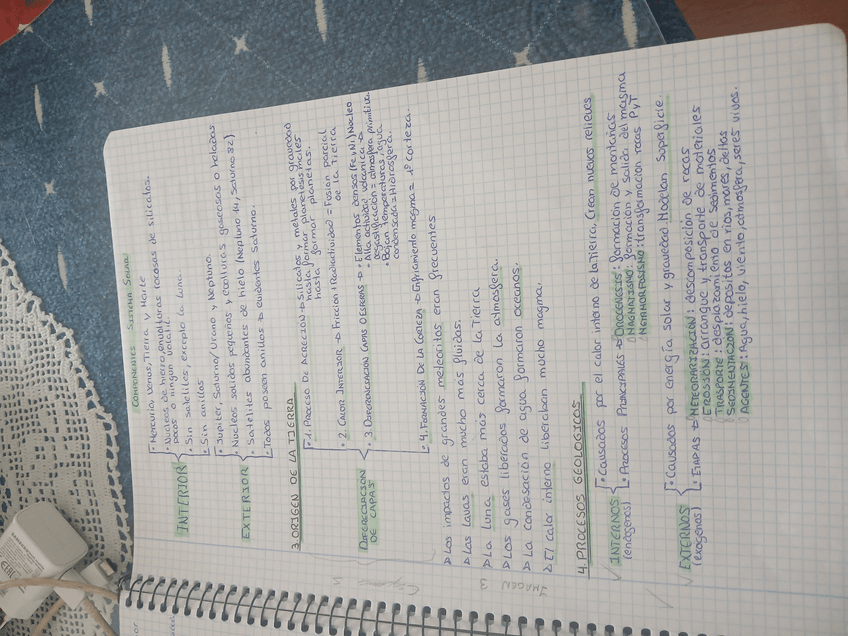 COMPONENTES SISTEMA SOLAR
INTERIOR
• Mercurio, Venus, Tierra y Marte
• Nucleos de hierro, envolturas rocosas de silicatos.
pocos o ningun volatil.
• Sin satelites, excepto la Luna.
• Sin anillos
EXTERIOR
• Jupiter, Saturno, Urano y Neptuno.
• Nucleos solidos pequeños y envolturas gaseosas o heladas.
• Satelites abundantes de hielo (Neptuno 14, Saturno 82)
• Todos poseen anillos → evidentes Saturno.
3. ORIGEN DE LA TIERRA
DIFERENCIACION
DE CAPAS
• 1. PROCESO DE ACRECION → Silicatos y metales por gravedad
hasta formar planetesimales
hasta formar planetas.
• 2. CALOR INTERIOR → Friccion + Radiactividad = Fusion parcial
de la Tierra
• 3. DIFERENCIACION CAPAS → • Elementos densos (Fe, Ni) Nucleo
• Alta actividad volcanica →
desgasificación = atmosfera primitiva
• Bajan temperaturas, agua
condensada = Hidrosfera.
• 4. FORMACION DE LA CORTEZA → Enfriamiento magma = 1º Corteza.
→ Los impactos de grandes meteoritos eran frecuentes
→ Las lavas eran mucho mas fluidas.
→ La luna estaba más cerca de la Tierra
→ Los gases liberados formaron la atmosfera.
→ La condensación de agua formaron oceanos.
→ El calor interno liberaban mucho magma.
4. PROCESOS GEOLOGICOS
INTERNOS
(endógenos)
• Causados por el calor interno de la Tierra, Crean nuevos relieves
• PROCESOS PRINCIPALES → OROGENESIS: formación de montañas
MAGMATISMO: formación y salida del magma
METAMORFOSISMO: transformación rocas P y T
EXTERNOS
(exogenos)
• Causados por energía solar y gravedad Modelan Superficie.
• ETAPAS → METEORORIZACIÓN: descomposición de rocas
EROSSIÓN: arranque y transporte de materiales
TRASPORTE: desplazamiento de sedimentos
SEDIMENTACCIÓN: depositos en rios, mares, deltas
AGENTES: Agua, hielo, viento, atmosfera, seres vivos.
IMAGEN 3